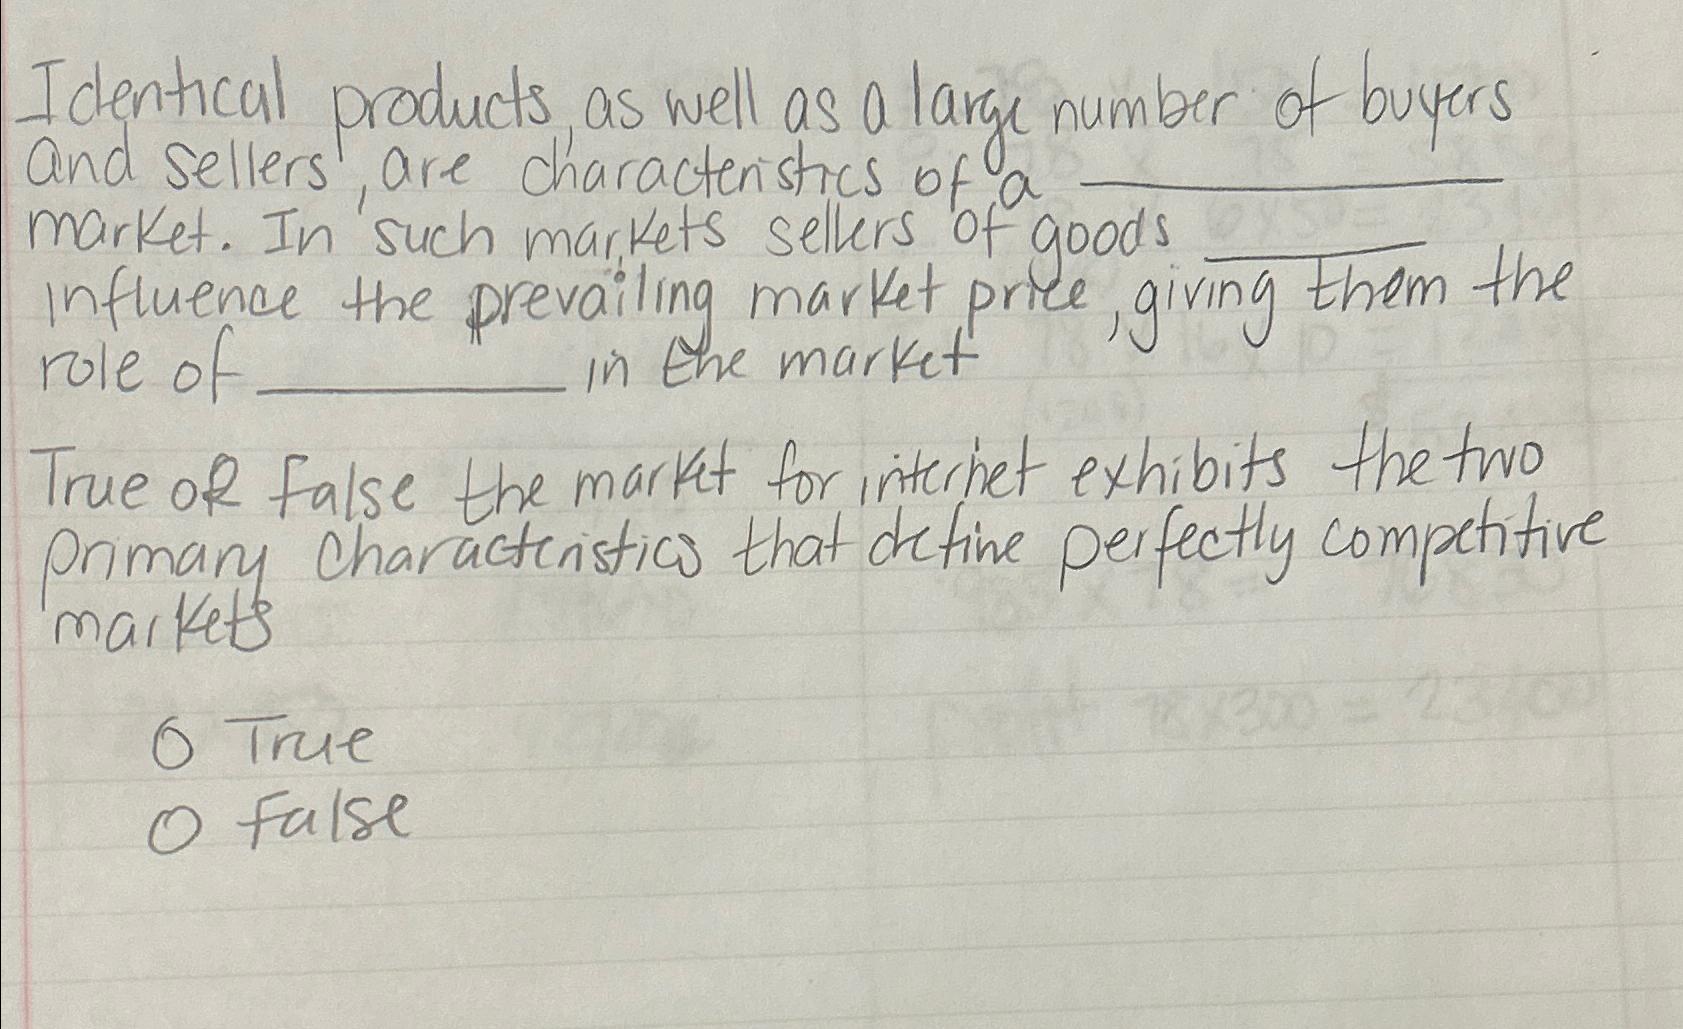 Identical products, as well as a large number of buyers
and sellers, are characteristics of a ____________
market. In such markets sellers of goods ________
influence the prevailing market price, giving them the
role of ____________ in the market
True or False the market for internet exhibits the two
primary characteristics that define perfectly competitive
markets
O True
O False
78x300 = 23400